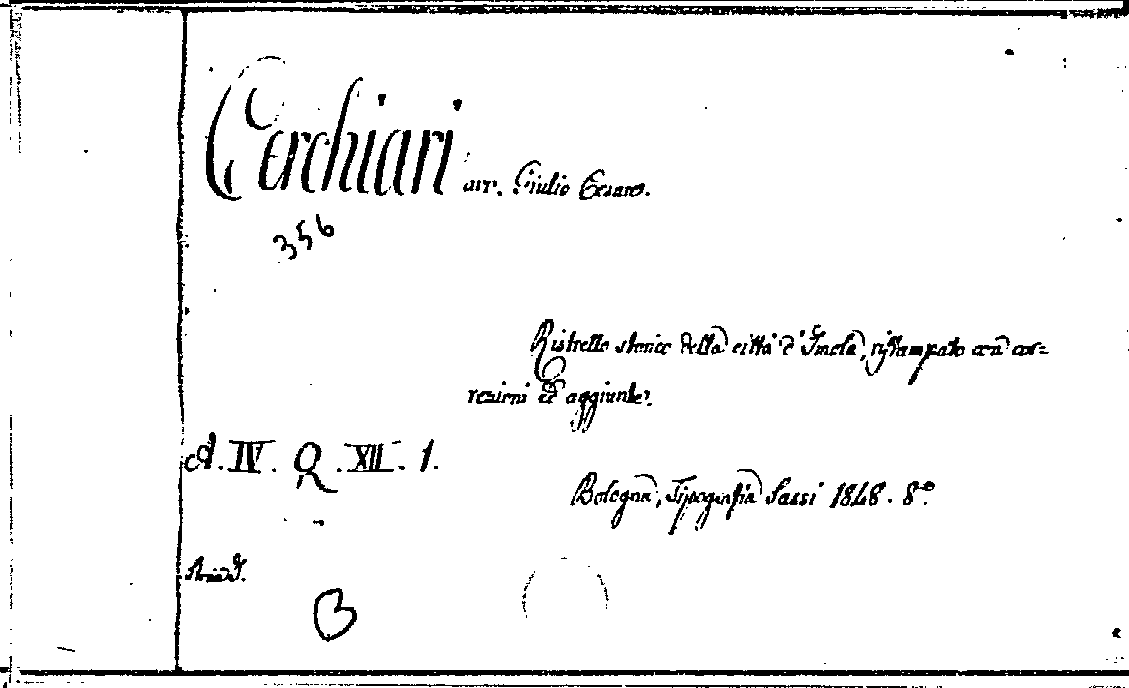 Cerchiari avv. Giulio Cesare.
356
Ristretto storico della città d'Imola, ristampato con cor=
rezioni ed aggiunte.
A. IV. Q. XII. 1.
Bologna, Tipografia Sassi 1848. 8.°
B